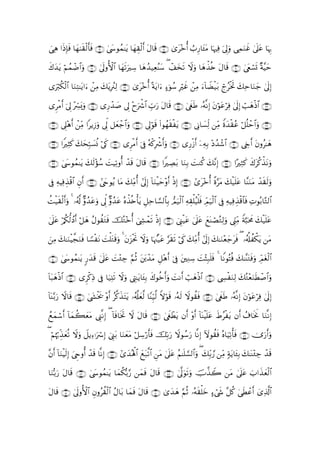 بِهَا عَلَىٰ غَنَمِى وَلِىَ فِيهَا مَـَٔارِبُ أُخْرَىٰ ۝ قَالَ أَلْقِهَا يَـٰمُوسَىٰ ۝ فَأَلْقَىٰهَا فَإِذَا هِىَ
حَيَّةٌ تَسْعَىٰ ۝ قَالَ خُذْهَا وَلَا تَخَفْ ۖ سَنُعِيدُهَا سِيرَتَهَا ٱلْأُولَىٰ ۝ وَٱضْمُمْ يَدَكَ
إِلَىٰ جَنَاحِكَ تَخْرُجْ بَيْضَآءَ مِنْ غَيْرِ سُوٓءٍ ءَايَةً أُخْرَىٰ ۝ لِنُرِيَكَ مِنْ ءَايَـٰتِنَا ٱلْكُبْرَى
۝ ٱذْهَبْ إِلَىٰ فِرْعَوْنَ إِنَّهُۥ طَغَىٰ ۝ قَالَ رَبِّ ٱشْرَحْ لِى صَدْرِى ۝ وَيَسِّرْ لِىٓ أَمْرِى
۝ وَٱحْلُلْ عُقْدَةً مِّن لِّسَانِى ۝ يَفْقَهُوا۟ قَوْلِى ۝ وَٱجْعَل لِّى وَزِيرًا مِّنْ أَهْلِى
۝ هَـٰرُونَ أَخِى ۝ ٱشْدُدْ بِهِۦٓ أَزْرِى ۝ وَأَشْرِكْهُ فِىٓ أَمْرِى ۝ كَىْ نُسَبِّحَكَ كَثِيرًا
۝ وَنَذْكُرَكَ كَثِيرًا ۝ إِنَّكَ كُنتَ بِنَا بَصِيرًا ۝ قَالَ قَدْ أُوتِيتَ سُؤْلَكَ يَـٰمُوسَىٰ
۝ وَلَقَدْ مَنَنَّا عَلَيْكَ مَرَّةً أُخْرَىٰٓ ۝ إِذْ أَوْحَيْنَآ إِلَىٰٓ أُمِّكَ مَا يُوحَىٰٓ ۝ أَنِ ٱقْذِفِيهِ فِى
ٱلتَّابُوتِ فَٱقْذِفِيهِ فِى ٱلْيَمِّ فَلْيُلْقِهِ ٱلْيَمُّ بِٱلسَّاحِلِ يَأْخُذْهُ عَدُوٌّ لِّى وَعَدُوٌّ لَّهُۥ ۚ وَأَلْقَيْتُ
عَلَيْكَ مَحَبَّةً مِّنِّى وَلِتُصْنَعَ عَلَىٰ عَيْنِىٓ ۝ إِذْ تَمْشِىٓ أُخْتُكَ فَتَقُولُ هَلْ أَدُلُّكُمْ عَلَىٰ
مَن يَكْفُلُهُۥ ۖ فَرَجَعْنَـٰكَ إِلَىٰٓ أُمِّكَ كَىْ تَقَرَّ عَيْنُهَا وَلَا تَحْزَنَ ۚ وَقَتَلْتَ نَفْسًا فَنَجَّيْنَـٰكَ مِنَ
ٱلْغَمِّ وَفَتَنَّـٰكَ فُتُونًا ۚ فَلَبِثْتَ سِنِينَ فِىٓ أَهْلِ مَدْيَنَ ثُمَّ جِئْتَ عَلَىٰ قَدَرٍ يَـٰمُوسَىٰ
۝ وَٱصْطَنَعْتُكَ لِنَفْسِى ۝ ٱذْهَبْ أَنتَ وَأَخُوكَ بِـَٔايَـٰتِى وَلَا تَنِيَا فِى ذِكْرِى ۝ ٱذْهَبَآ
إِلَىٰ فِرْعَوْنَ إِنَّهُۥ طَغَىٰ ۝ فَقُولَا لَهُۥ قَوْلًا لَّيِّنًا لَّعَلَّهُۥ يَتَذَكَّرُ أَوْ يَخْشَىٰ ۝ قَالَا رَبَّنَآ
إِنَّنَا نَخَافُ أَن يَفْرُطَ عَلَيْنَآ أَوْ أَن يَطْغَىٰ ۝ قَالَ لَا تَخَافَآ ۖ إِنَّنِى مَعَكُمَآ أَسْمَعُ
وَأَرَىٰ ۝ فَأْتِيَاهُ فَقُولَآ إِنَّا رَسُولَا رَبِّكَ فَأَرْسِلْ مَعَنَا بَنِىٓ إِسْرَٰٓءِيلَ وَلَا تُعَذِّبْهُمْ ۖ
قَدْ جِئْنَـٰكَ بِـَٔايَةٍ مِّن رَّبِّكَ ۖ وَٱلسَّلَـٰمُ عَلَىٰ مَنِ ٱتَّبَعَ ٱلْهُدَىٰٓ ۝ إِنَّا قَدْ أُوحِىَ إِلَيْنَآ أَنَّ
ٱلْعَذَابَ عَلَىٰ مَن كَذَّبَ وَتَوَلَّىٰ ۝ قَالَ فَمَن رَّبُّكُمَا يَـٰمُوسَىٰ ۝ قَالَ رَبُّنَا
ٱلَّذِىٓ أَعْطَىٰ كُلَّ شَىْءٍ خَلْقَهُۥ ثُمَّ هَدَىٰ ۝ قَالَ فَمَا بَالُ ٱلْقُرُونِ ٱلْأُولَىٰ ۝ قَالَ